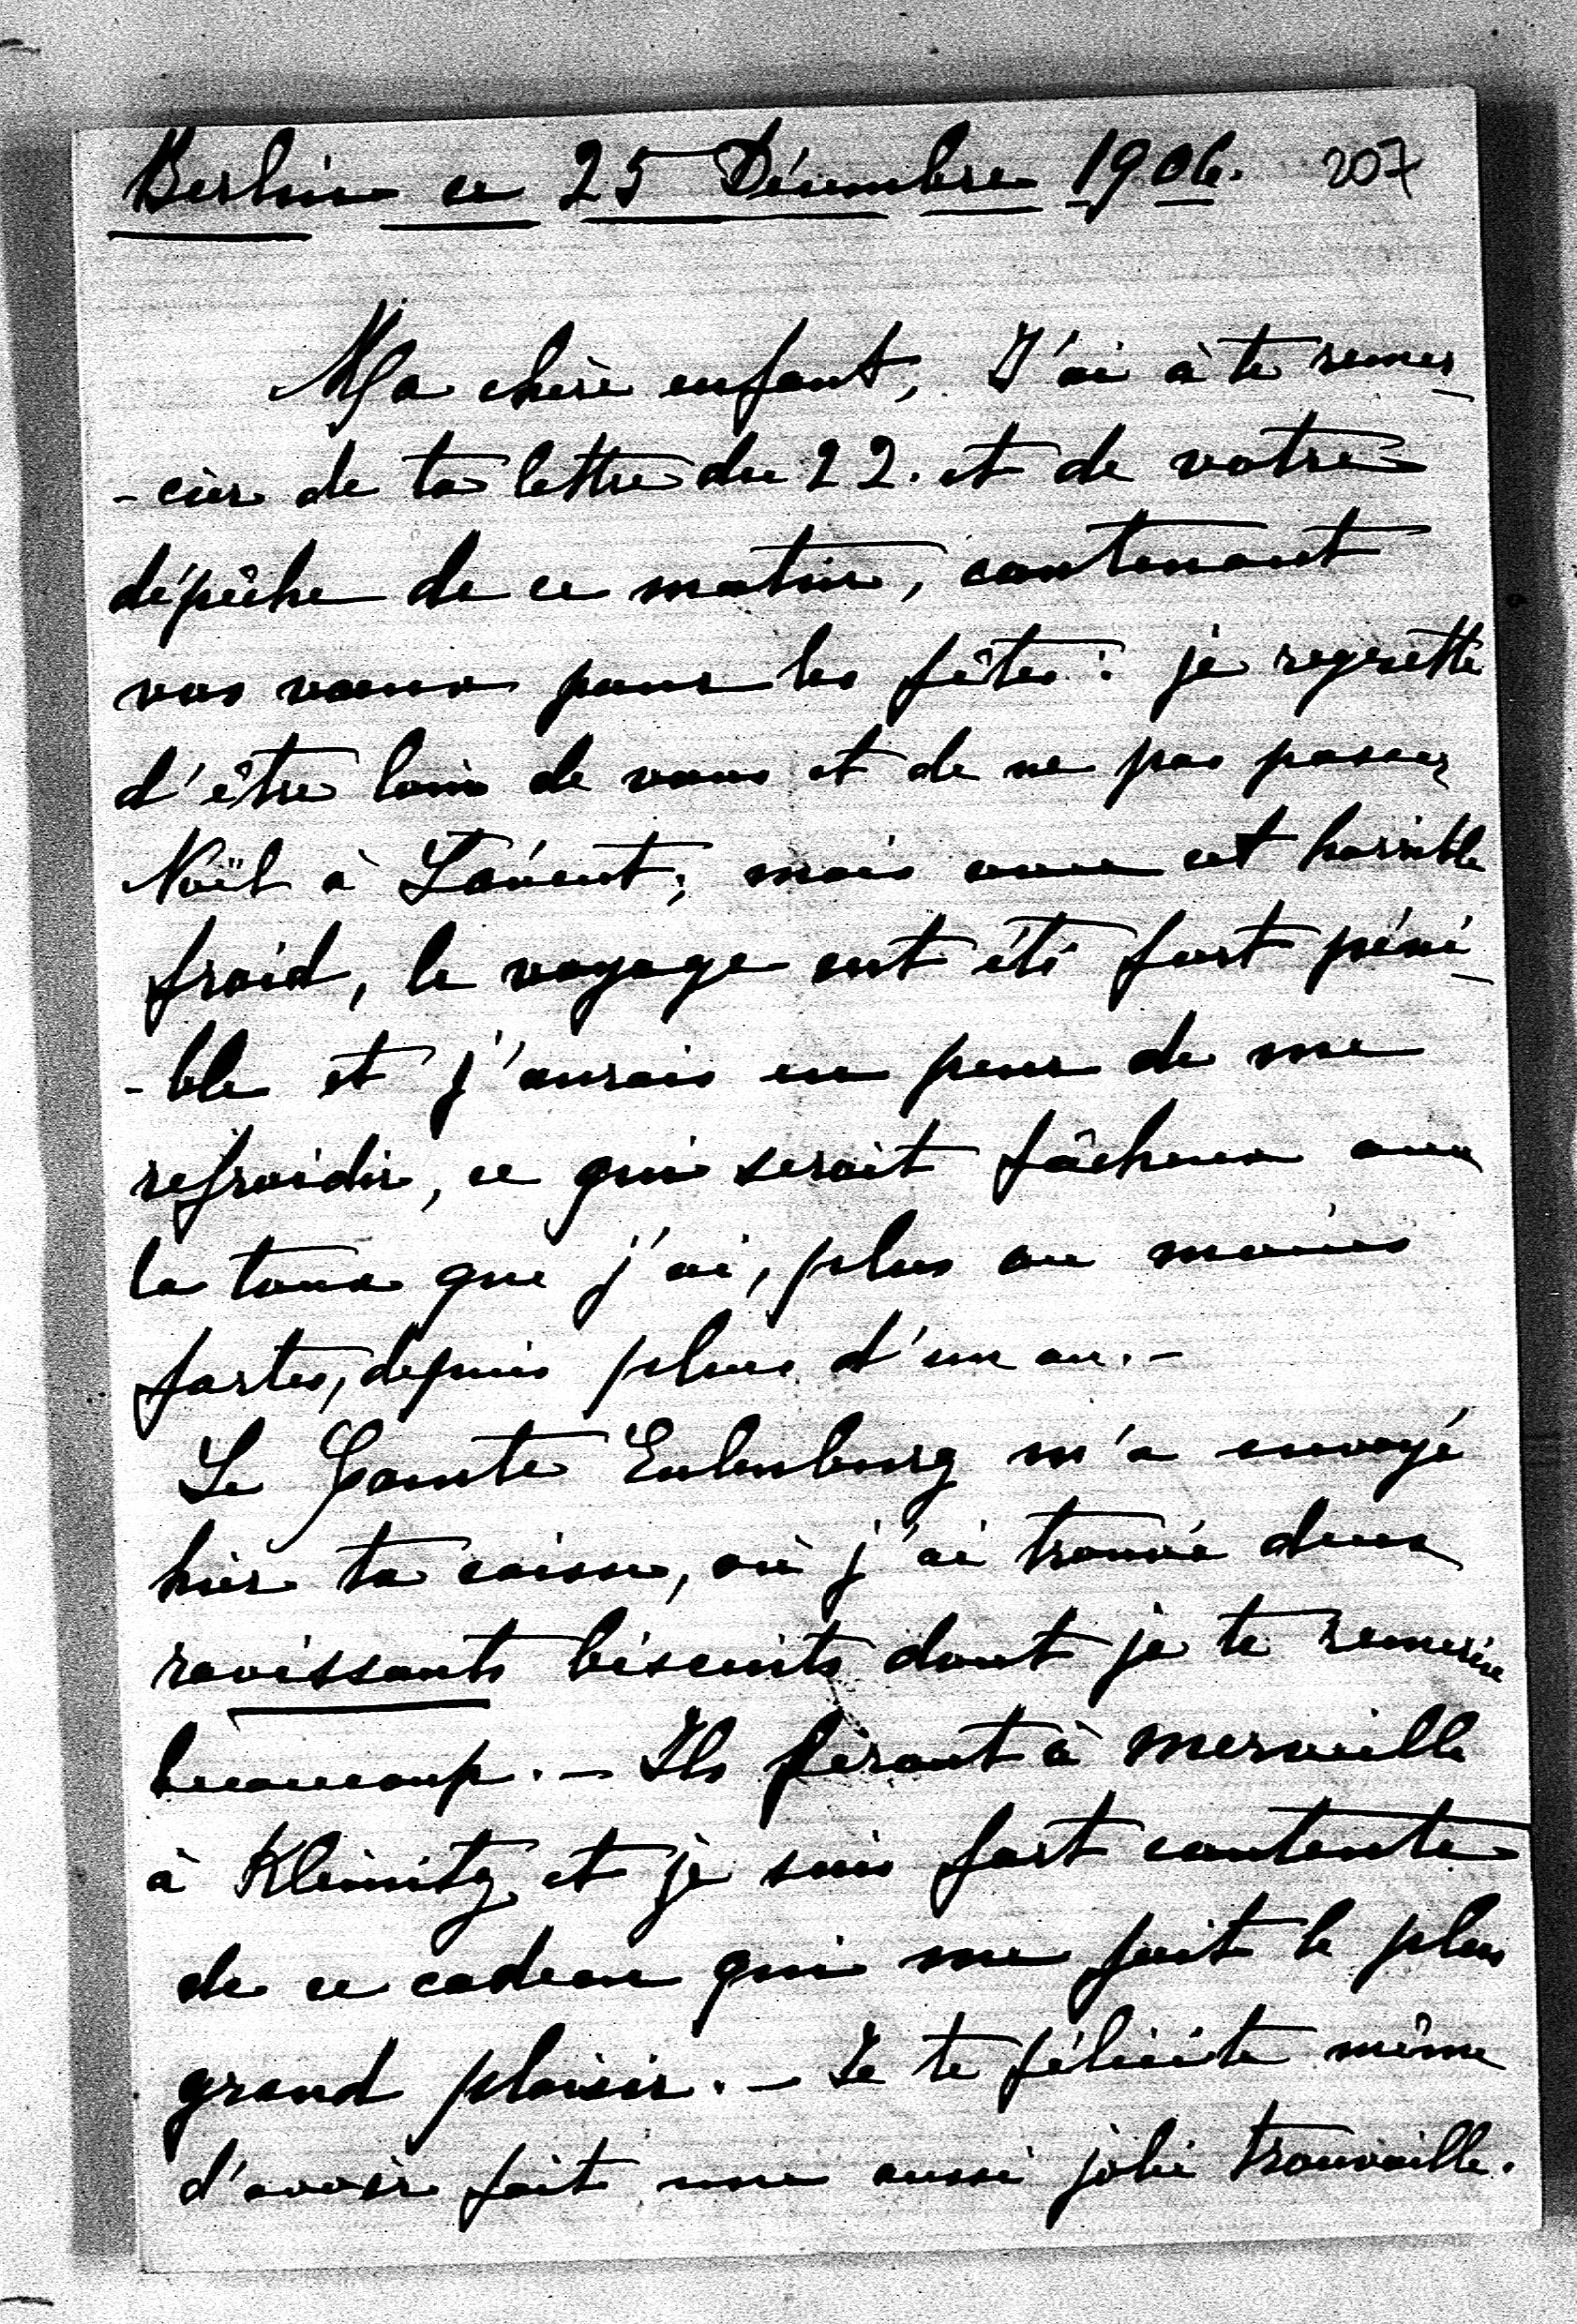 Berlin ce 25 Décembre 1906. 207
Ma chère enfant, J'ai à te remer-
-cier de ta lettre du 22. et de votre
dépêche de ce matin, contenant
vos voeux pour les fêtes: je regrette
d'être loin de vous et de ne pas passer
Noël à Lancut; mais avec cet horrible
froid, le voyage eut été fort péni-
-ble et j'aurais eu peur de me
refroidir, ce qui serait fâcheux avec
la toux que j'ai, plus ou moins
fortes, depuis plus d'un an.-
Le Comte Eulenburg m'a envoyé
hier ta caisse, où j'ai trouvé deux
ravissants biscuits dont je te remercie
beaucoup.- Ils feront à merveille
à Kleinitz et je suis fort contente
de ce cadeau qui me fait le plus
grand plaisir.- Je te félicite même
d'avoir fait une aussi jolie trouvaille.